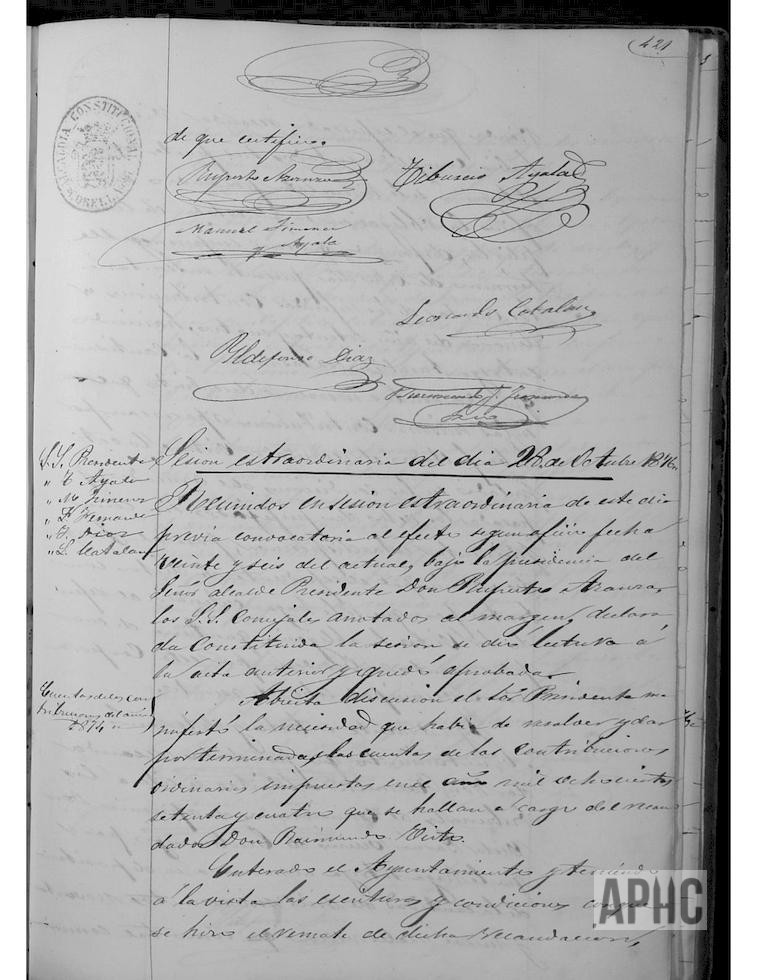 421
ALCALDIA CONSTITUCIONAL
de que certifico.
Ruperto Aranzu
Tiburcio Ayala
Manuel Jimenez
y Ayala
Leonardo Catalan
Yldefonso Diaz
S. S. Presidente
" T Ayala
" M Jimenez
" F Fernand
" Y. Diaz
" L. Catalan
Sesion estraordinaria del dia 28 de Octubre 1876
Reunidos en sesion estraordinaria de este dia
previa convocatoria al efecto segun oficio fecha
veinte y seis del actual, bajo la presidencia del
Señor alcalde Presidente Don Ruperto Aranzu,
los S.S. Concejales anotados al margen, declara
da Constituida la sesion se dió lectura á
la acta anterior y quedó aprobada.
Cuentas de las con
tribuciones del año
1874
Abierta discusion el Sor Presidente ma
nifestó la necesidad que habia de resolver y dar
por terminadas las cuentas de las contribuciones
ordinarias impuestas en el año mil ochocientos
setenta y cuatro que se hallan á cargo del recau
dador Don Raimundo
Enterado el Ayuntamiento y teniendo
á la vista las escrituras y condiciones conque
se hizo el remate de dicha recaudacion,
APHC